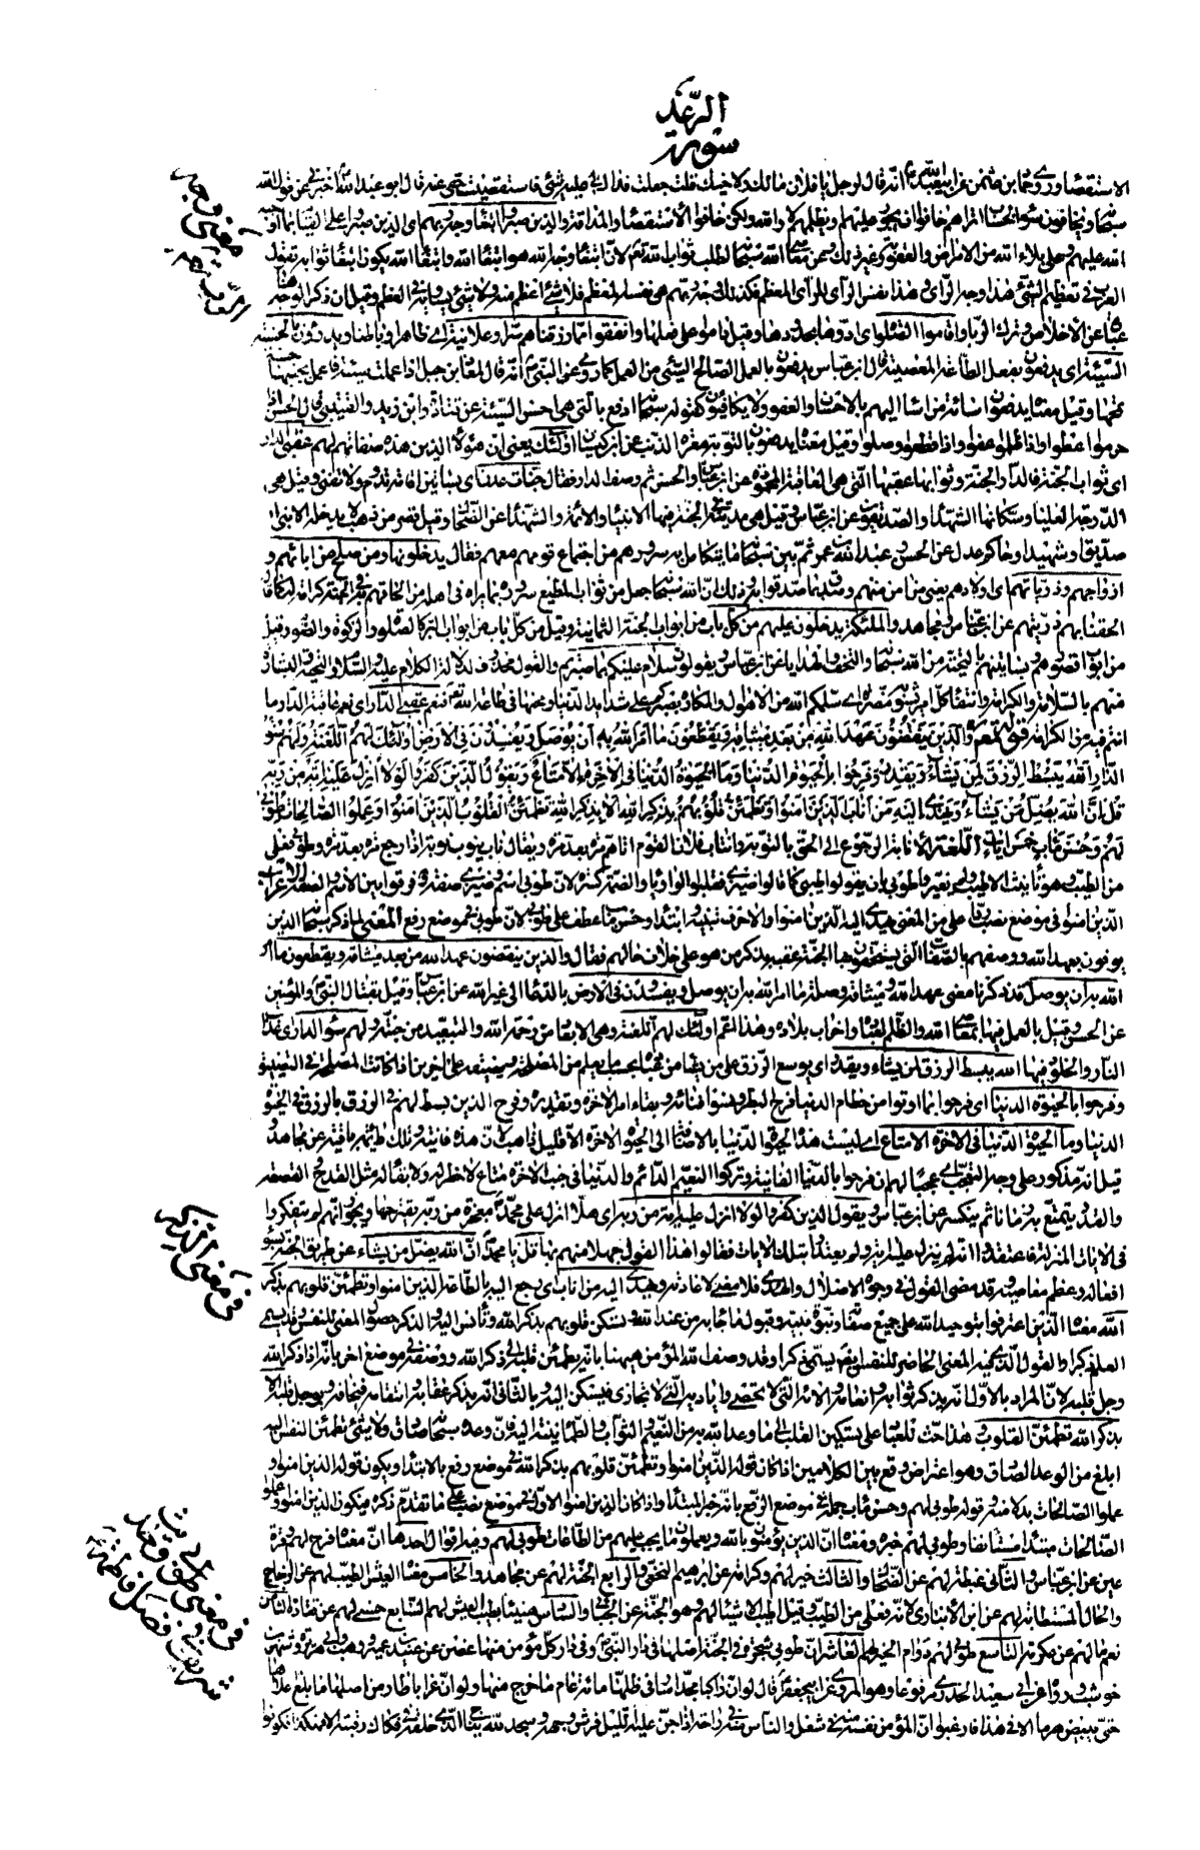 الرعد
سورة
الاستقصاء وروى حماد بن عثمن عن ابي عبد الله ع انه قال لرجل يا فلان مالك ولاخيك قلت جعلت فداك لي عليه شيء فاستقصيت حقي عنه قال ابو عبد الله اخبرني عن قول الله
سبحانه ويخافون سوء الحساب اتراهم خافوا ان يجور عليهم او يظلمهم لا والله ولكن خافوا الاستقصاء والمداقة والذين صبروا ابتغاء وجه ربهم اي الذين صبروا على القيام بما اوجبه
الله عليهم وعلى بلاء الله من الامراض والعقوبة وغير ذلك وعن معاصي الله سبحانه لطلب ثواب الله تعالى لان ابتغاء وجه الله هو ابتغاء الله وابتغاء الله يكون ابتغاء ثوابه تقول
العرب في تعظيم الشيء هذا وجه الرأي وهذا نفس الرأي للرأي المعظم فكذلك وجه ربهم هي نفسه المعظم فلا شيء اعظم منه ولا شيء يساويه في العظم وقيل ان ذكر الوجه هنا
عبارة عن الاخلاص وترك الريا واقاموا الصلوة اي ادوها بحدودها وقيل داموا على فعلها وانفقوا مما رزقناهم سرا وعلانية اي ظاهرا وباطنا ويدرؤن بالحسنة
السيئة اي يدفعون بفعل الطاعة المعصية قال ابن عباس يدفعون بالعمل الصالح السيئ من العمل كما روي عن النبي انه قال لمعاذ بن جبل اذا عملت سيئة فاعمل بجنبها حسنة
تمحها وقيل معناه يدفعون اساءة من اساء اليهم بالاحسان والعفو ولا يكافئون كقوله سبحانه ادفع بالتي هي احسن السيئة عن قتادة وابن زيد والقتيبي قال الحسن اذا
حرموا اعطوا واذا ظلموا عفوا واذا قطعوا وصلوا وقيل معناه يدفعون بالتوبة معرة الذنب عن ابن كيسان اولئك يعني ان هؤلاء الذين هذه صفاتهم لهم عقبى الدار
اي ثواب الجنة فالدار الجنة وثوابها عقبتها التي هي العاقبة المحمودة عن ابن عباس والحسن ثم وصف الدار فقال جنات عدن اي بساتين اقامة تدوم ولا تفنى وقيل هي
الدرجة العليا وسكانها الشهداء والصديقون عن ابن عباس وقيل هي مدينة في الجنة فيها الانبياء والائمة والشهداء عن الضحاك وقيل قصر من ذهب لا يدخله الا نبي او
صديق او شهيد او حاكم عدل عن الحسن وعبد الله بن عمر ثم بين سبحانه ما يتكامل به سرورهم من اجتماع قومهم معهم فقال يدخلونها ومن صلح من ابائهم و
ازواجهم وذرياتهم اي اولادهم يعني من امن منهم وصدق بما صدقوا به وذلك ان الله سبحانه جعل من ثواب المطيع سروره بما يراه في اهله من الحاقهم به في الجنة كرامة له كما قال
الحقنا بهم ذريتهم عن ابن عباس ومجاهد والملئكة يدخلون عليهم من كل باب من ابواب الجنة الثمانية وقيل من كل باب من ابواب البر كالصلوة والزكوة والصوم وقيل
من ابواب قصورهم وبساتينهم بالتحية من الله سبحانه والتحف والهدايا عن ابن عباس ويقولون سلام عليكم بما صبرتم والقول محذوف لدلالة الكلام عليه والسلام والتحية والبشارة
منهم بالسلامة والكرامة وانتفاء كل امر يشوبه مضرة اي سلمكم الله من الاهوال والمكاره بصبركم على شدايد الدنيا ومحنها في طاعة الله تعالى فنعم عقبى الدار اي نعم عاقبة الدار ما
انتم فيه من الكرامة قوله تعالى والذين ينقضون عهد الله من بعد ميثاقه ويقطعون ما امر الله به ان يوصل ويفسدون في الارض اولئك لهم اللعنة ولهم سوء
الدار الله يبسط الرزق لمن يشاء ويقدر وفرحوا بالحيوة الدنيا وما الحيوة الدنيا في الاخرة الا متاع ويقول الذين كفروا لولا انزل عليه اية من ربه
قل ان الله يضل من يشاء ويهدي اليه من اناب الذين امنوا وتطمئن قلوبهم بذكر الله الا بذكر الله تطمئن القلوب الذين امنوا وعملوا الصالحات طوبى
لهم وحسن مآب خمس ايات اللغة الانابة الرجوع الى الحق بالتوبة وانتاب فلان القوم اتاهم مرة بعد مرة ويقال ناب ينوب نوبة اذا رجع مرة بعد مرة وطوبى فعلى
من الطيب وهو تأنيث الاطيب
الذين امنوا في موضع نصب ردا على من المعنى يهدي اليه الذين امنوا والا حرف تنبيه وابتداء وحسن مآب عطف على طوبى لان طوبى في موضع رفع المعنى لما ذكر سبحانه الذين
يوفون بعهد الله ووصفهم بالصفات التي يستحقون بها الجنة عقبه بذكر من هو على خلاف حالهم فقال والذين ينقضون عهد الله من بعد ميثاقه ويقطعون ما امر
الله به ان يوصل قد ذكرنا معنى عهد الله وميثاقه وصلة ما امر الله به ان يوصل ويفسدون في الارض بالدعاء الى غير الله عن ابن عباس وقيل بقتال النبي والمؤمنين
عن الحسن وقيل بالعمل فيها بمعاصي الله والظلم لعباده واخراب بلاده وهذا اعم اولئك لهم اللعنة وهي الابعاد من رحمة الله والتبعيد من جنته ولهم سوء الدار اي عذاب
النار والخلود فيها الله يبسط الرزق لمن يشاء ويقدر اي يوسع الرزق على من يشاء من عباده بحسب ما يعلم من المصلحة ويضيقه على اخرين اذا كانت المصلحة في التضييق
وفرحوا بالحيوة الدنيا اي فرحوا بما اوتوا من حطام الدنيا فرح البطر ونسوا فناءه وبقاء امر الاخرة وتقديره وفرح الذين بسط لهم في الرزق بالرزق في الحيوة
الدنيا وما الحيوة الدنيا في الاخرة الا متاع اي ليست هذه الحيوة الدنيا بالاضافة الى الحيوة الاخرة الا قليل ذاهب لان هذه فانية وتلك دائمة باقية عن مجاهد و
قيل انه مذكور على وجه التعجب اي عجبا لهم ان فرحوا بالدنيا الفانية وتركوا النعيم الدائم والدنيا في جنب الاخرة متاع لا خطر له ولا بقاء له مثل القدح والقصعة
والقدر يتمتع به زمانا ثم ينكسر عن ابن عباس ويقول الذين كفروا لولا انزل عليه اية من ربه اي هلا انزل على محمد معجزة من ربه يقترحها ويجوز انهم لم يتفكروا
في الايات المنزلة فاعتقدوا انه لم ينزل عليه اية ولم يعتدوا بتلك الايات فقالوا هذا القول جهلا منهم بها قل يا محمد ان الله يضل من يشاء عن طريق الجنة بسوء
افعاله وعظم معاصيه وقد مضى القول في وجوه الاضلال والهدى فلا معنى لاعادته ويهدي اليه من اناب اي رجع اليه بالطاعة الذين امنوا وتطمئن قلوبهم بذكر
الله معناه الذين اعترفوا بتوحيد الله على جميع صفاته ونبوة نبيه وقبول ما جاء به من عند الله وتسكن قلوبهم بذكر الله وتأنس اليه والذكر حصول المعنى للنفس وقد يسمى
العلم ذكرا والقول الذي فيه المعنى الحاضر للنفس ايضا يسمى ذكرا وقد وصف الله المؤمن ههنا بانه يطمئن قلبه الى ذكر الله ووصفه في موضع اخر بانه اذا ذكر الله
وجل قلبه لان المراد بالاول انه يذكر ثوابه وانعامه والاءه التي لا تحصى واياديه التي لا تجازى فيسكن اليه وبالثاني انه يذكر عقابه وانتقامه فيخافه ويوجل قلبه الا
بذكر الله تطمئن القلوب هذا حث للعباد على تسكين القلب الى ما وعد الله به من النعيم والثواب والطمأنينة اليه فان وعده سبحانه صادق ولا شيء تطمئن النفس اليه
ابلغ من الوعد الصادق وهو اعتراض وقع بين الكلامين اذا كان قوله الذين امنوا وتطمئن قلوبهم بذكر الله في موضع رفع بالابتداء ويكون قوله الذين امنوا و
عملوا الصالحات بدلا منه وقوله طوبى لهم وحسن مآب جملة في موضع الرفع بانه خبر المبتدا واذا كان الذين امنوا الاول في موضع نصب على ما تقدم ذكره فيكون الذين امنوا وعملوا
الصالحات مبتدأ مستأنفا وطوبى لهم خبره ومعناه ان الذين يؤمنون بالله ويعملون ما يجب عليهم من الطاعات طوبى لهم وفيه اقوال احدها ان معناه فرح لهم وقرة
عين عن ابن عباس والثاني غبطة لهم عن الضحاك والثالث خير لهم وكرامة عن ابرهيم النخعي والرابع الجنة لهم عن مجاهد والخامس معناه العيش الطيب لهم عن الزجاج
والحال المستطابة لهم عن ابن الانباري لانه فعلى من الطيب وقيل اطيب الاشياء لهم وهو الجنة عن الجبائي والسادس هنيئا بطيب العيش لهم السابع حسنى لهم عن قتادة الثامن
نعم ما لهم عن عكرمة التاسع طوبى لهم دوام الخير لهم العاشر ان طوبى شجرة في الجنة اصلها في دار النبي وفي دار كل مؤمن منها غصن عن عبيد بن عمير ووهب وابي هريرة وشهر بن
حوشب وروي عن ابي سعيد الخدري مرفوعا وهو المروي عن ابي جعفر ع قال لو ان راكبا مجدا سار في ظلها مائة عام ما خرج منها ولو ان غرابا طار من اصلها ما بلغ اعلاها
حتى يبيض هرما الا في هذا فارغبوا ان المؤمن نفسه منه في شغل والناس منه في راحة اذا جن عليه الليل فرش وجهه وسجد لله يناجي الذي خلقه في فكاك رقبته الا هكذا فكونوا
معنى وجه
الرب تعالى
في معنى الذكر
في معنى طوبى